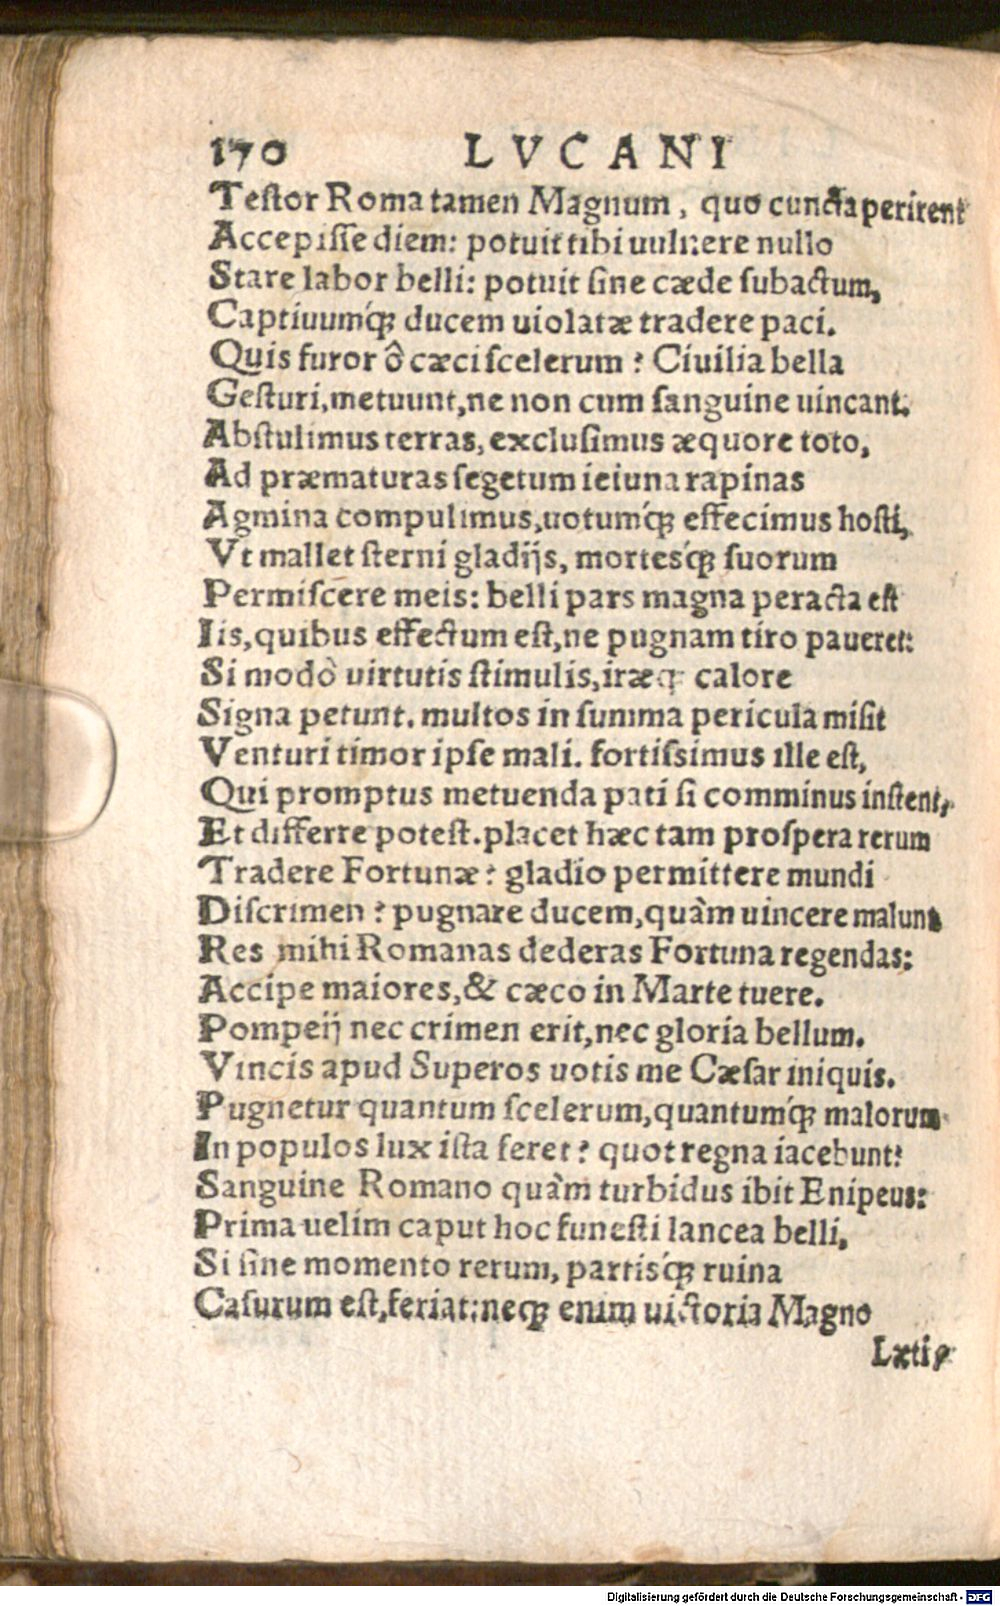 170 LVCANI
Testor Roma tamen Magnum, quo cuncta perirent
Accepisse diem: potuit tibi uulnere nullo
Stare labor belli: potuit sine cæde subactum,
Captiuumq́; ducem uiolatæ tradere paci.
Quis furor ô cæci scelerum? Ciuilia bella
Gesturi, metuunt, ne non cum sanguine uincant.
Abstulimus terras, exclusimus æquore toto,
Ad præmaturas segetum ieiuna rapinas
Agmina compulimus, uotumq́; effecimus hosti,
Vt mallet sterni gladijs, mortesq́; suorum
Permiscere meis: belli pars magna peracta est
Iis, quibus effectum est, ne pugnam tiro paueret:
Si modò uirtutis stimulis, iræq; calore
Signa petunt. multos in summa pericula misit
Venturi timor ipse mali. fortissimus ille est,
Qui promptus metuenda pati si comminus instent,
Et differre potest. placet hæc tam prospera rerum
Tradere Fortunæ? gladio permittere mundi
Discrimen? pugnare ducem, quàm uincere malunt
Res mihi Romanas dederas Fortuna regendas:
Accipe maiores, & cæco in Marte tuere.
Pompeij nec crimen erit, nec gloria bellum.
Vincis apud Superos uotis me Cæsar iniquis.
Pugnetur quantum scelerum, quantumq́; malorum
In populos lux ista feret? quot regna iacebunt?
Sanguine Romano quàm turbidus ibit Enipeus:
Prima uelim caput hoc funesti lancea belli,
Si sine momento rerum, partisq́; ruina
Casurum est, feriat: neq; enim uictoria Magno
Lætior
Digitalisierung gefördert durch die Deutsche Forschungsgemeinschaft - DFG